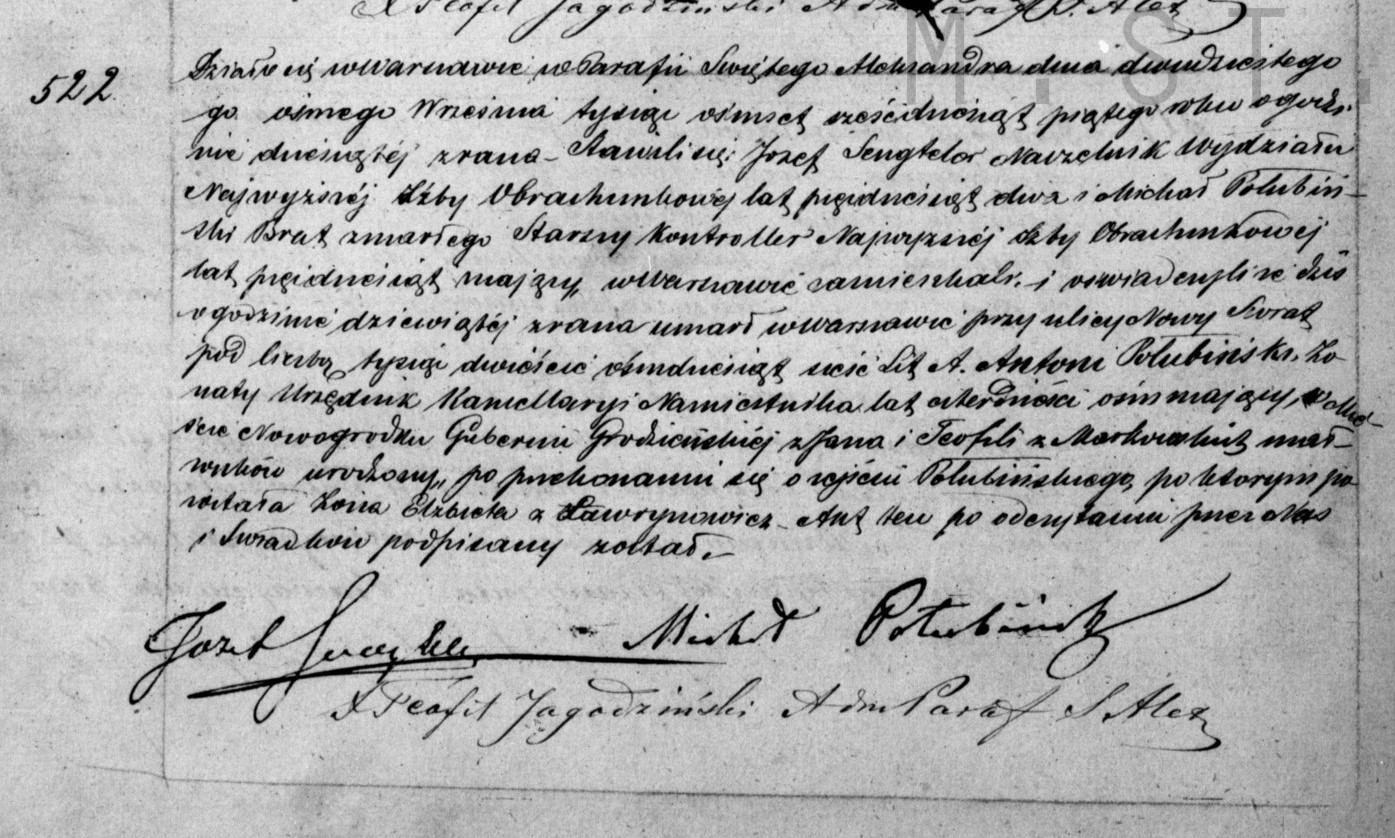 X Teofil Jagodziński Adm Paraf S. Alex
M . S T .
522.
Działo się w Warszawie w Parafii Swiętego Alexandra dnia dwudziestego
go ośmego Września tysiąc ośmset sześćdziesiąt piątego roku o godzi
nie dziesiątéj zrana – Stawili się: Jozef Sengteler Naczelnik Wydziału
Najwyższéj Izby Obrachunkowéj lat pięćdziesiąt dwa i Michał Połubiń–
ski Brat zmarłego Starszy Kontroller Najwyższéj Izby Obrachunkowej
lat pięćdziesiąt mający, w Warszawie zamieszkali. i oswiadczyli że dziś
o godzinie dziewiątéj zrana umarł w Warszawie przy ulicy Nowy Swiat
pod liczbą tysiąc dwieście ośmdziesiąt sześć Lit A. Antoni Połubiński. Żo
naty Urzędnik Kancellaryi Namiestnika lat czterdzieści ośm mający, w
scie Nowogrodku Gubernii Grodzieńskiéj z Jana i Teofili z Markowskich mał–
żonków urodzony, po przekonaniu się o zejściu Połubińskiego, po ktorym po
zostala Żona Elżbieta z Ławrynowicz – Akt ten po odczytaniu przez Nas
i Swiadkow podpisany został. –
Jozef Michał Połubiński
X Teofil Jagodziński Adm Paraf S Alex